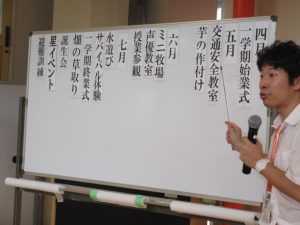 四月
一学期始業式
五月
交通安全教室
芋の作付け
六月
ミニ牧場
声優教室
授業参観
七月
水遊び
サバイバル体験
一学期終業式
畑の草取り
誕生会
星イベント
避難訓練